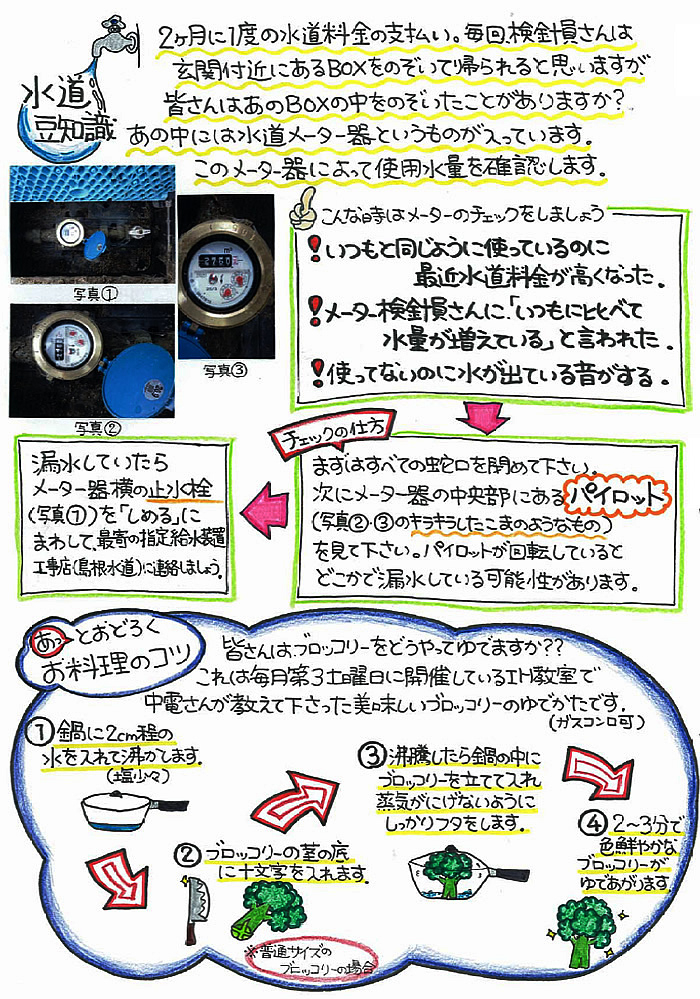 水道
豆知識
2ヶ月に1度の水道料金の支払い。毎回、検針員さんは
玄関付近にあるBOXをのぞいて帰られると思いますが、
皆さんはあのBOXの中をのぞいたことがありますか?
あの中には水道メーター器というものが入っています。
このメーター器によって使用水量を確認します。
写真①
写真②
写真③
こんな時はメーターのチェックをしましょう
!いつもと同じように使っているのに
最近水道料金が高くなった。
!メーター検針員さんに、「いつもに比べて
水量が増えている」と言われた。
!使ってないのに水が出ている音がする。
チェックの仕方
まずはすべての蛇口を閉めて下さい。
次にメーター器の中央部にある パイロット
(写真②・③のキラキラしたこまのようなもの)
を見て下さい。パイロットが回転していると
どこかで漏水している可能性があります。
漏水していたら
メーター器横の止水栓
(写真①)を「しめる」に
まわして、最寄の指定給水装置
工事店(島根水道)に連絡しましょう。
あっとおどろく
お料理のコツ
皆さんは、ブロッコリーをどうやってゆでますか??
これは毎月第3土曜日に開催しているIH教室で
中電さんが教えて下さった美味しいブロッコリーのゆでかたです。
(ガスコンロ可)
①鍋に2cm程の
水を入れて沸かします。
(塩少々)
②ブロッコリーの茎の底
に十文字を入れます。
※普通サイズの
ブロッコリーの場合
③沸騰したら鍋の中に
ブロッコリーを立てて入れ
蒸気がにげないように
しっかりフタをします。
④2~3分で
色鮮やかな
ブロッコリーが
ゆであがります。